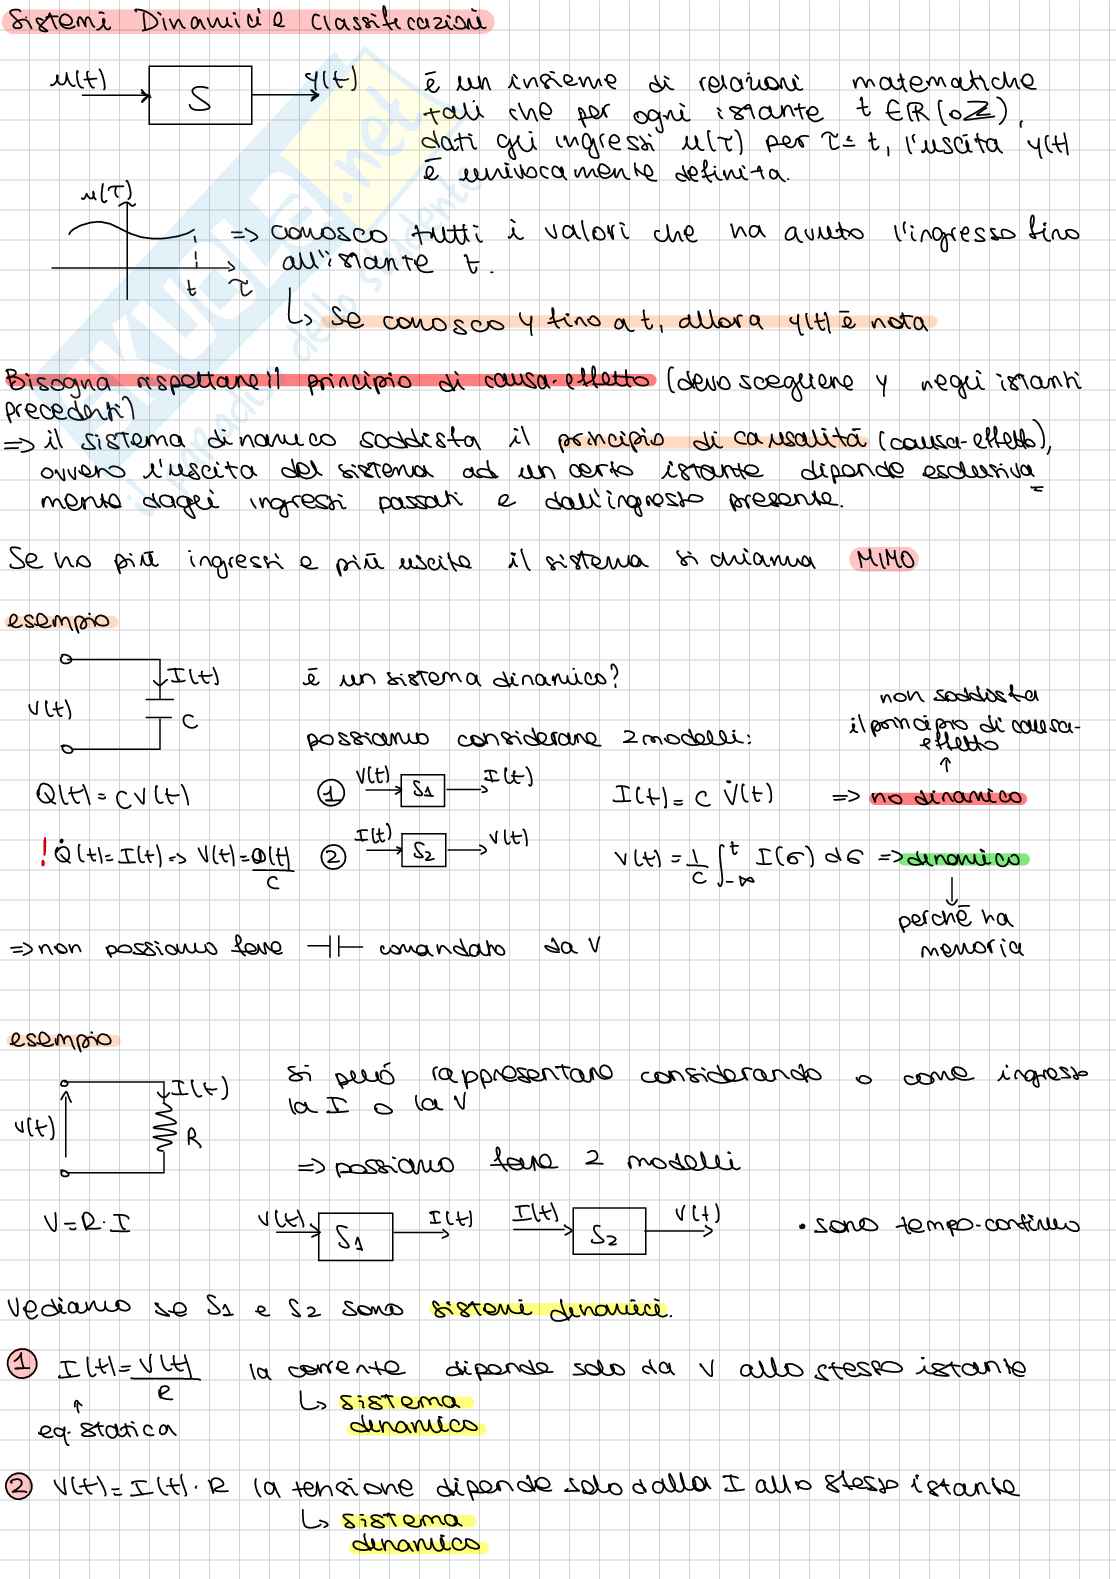 Sistemi Dinamici e classificazioni
u(t) S y(t)
è un insieme di relazioni matematiche
tali che per ogni istante t ∈ ℝ (o ℤ),
dati gli ingressi u(τ) per τ≤ t, l'uscita y(t)
è univocamente definita.
u(τ)
t τ
=> conosco tutti i valori che ha avuto l'ingresso fino
all'istante t.
↳ se conosco y fino a t, allora y(t) è nota
Bisogna rispettare il principio di causa-effetto (devo scegliere y negli istanti
precedenti)
=> il sistema dinamico soddisfa il principio di causalità (causa-effetto),
ovvero l'uscita del sistema ad un certo istante dipende esclusiva
mente dagli ingressi passati e dall'ingresso presente.
Se ho più ingressi e più uscite il sistema si chiama MIMO
esempio
V(t) I(t) C
è un sistema dinamico?
possiamo considerare 2 modelli:
non soddisfa
il principio di causa-
effetto
↑
Q(t) = C V(t)
① V(t) S1 I(t) I(t) = C V̇(t) => no dinamico
! Q̇(t) = I(t) => V(t) = Q(t)/C
② I(t) S2 V(t) V(t) = 1/C ∫_{-∞}^{t} I(σ) dσ => dinamico
↓
perché ha
memoria
=> non possiamo fare ⊣⊢ comandato da V
esempio
V(t) I(t) R
si può rappresentare considerando o come ingresso
la I o la V
=> possiamo fare 2 modelli
V = R · I
V(t) S1 I(t) I(t) S2 V(t) • sono tempo-continuo
Vediamo se S1 e S2 sono sistemi dinamici.
① I(t) = V(t)/R la corrente dipende solo da V allo stesso istante
↑
eq. statica
↳ sistema
dinamico
② V(t) = I(t) · R la tensione dipende solo dalla I allo stesso istante
↳ sistema
dinamico